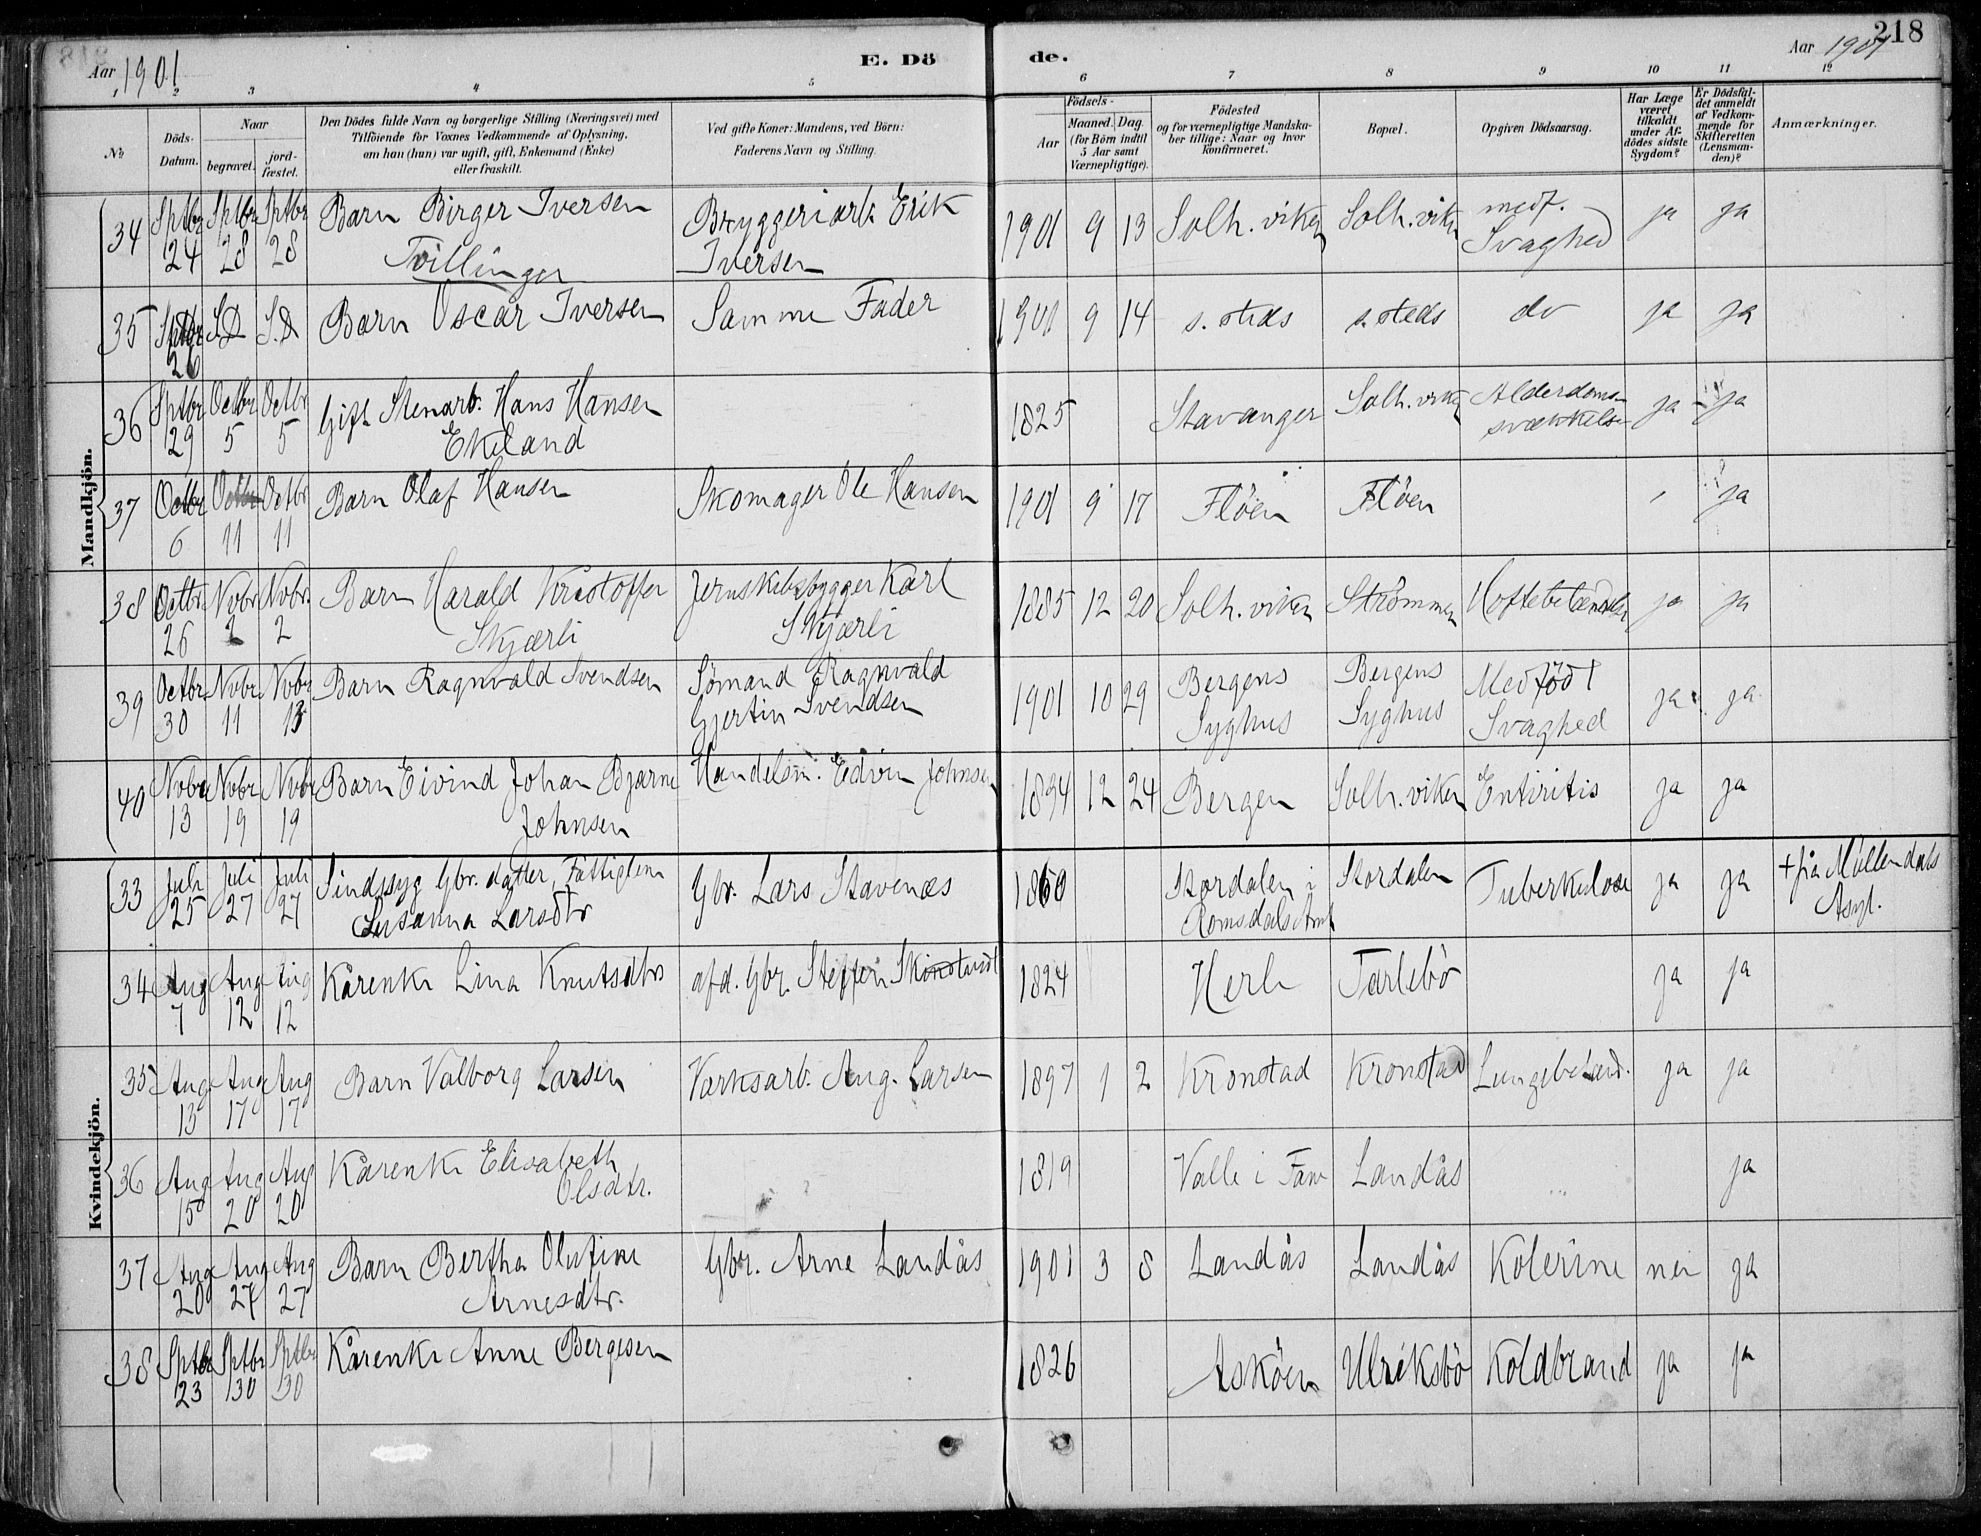 218
Aar 1901
E. Dö
de.
Aar 1901
2 3 4 5 6 7 8 9 10 11 12
No
Döds-Datum.
Naar
begravet.
jord-fæstet.
Den Dödes fulde Navn og borgerlige Stilling (Næringsvei) med
Tilföiende for Voxnes Vedkommende af Oplysning,
om han (hun) var ugift, gift, Enkemand (Enke)
eller fraskilt.
Ved gifte Koner: Mandens, ved Börn:
Faderens Navn og Stilling.
Födsels-
Aar
Maaned. Dag.
(for Börn indtil
5 Aar samt
Værnepligtige).
Födested
og for værnepligtige Mandska-
ber tillige: Naar og hvor
konfirmeret.
Bopæl.
Opgiven Dödsaarsag.
Har Læge
været
tilkaldt
under Af-
dödes sidste
Sygdom?
Er Dödsfal-
det anmeldt
af Vedkom-
mende for
Skifteretten
(Lensman-
den)?
Anmærkninger.
Mandkjön.
34 Sptbr 24 Sptbr 28 Sptbr 28 Barn Birger Iversen Bryggeriarb. Erik 1901 9 13 Solh.viken Solh.viken medf. ja ja
Tvillinger Iversen Svaghed
35 Sptbr 26 S.D S.D Barn Oscar Iversen Samme Fader 1901 9 14 s. steds s. steds do ja ja
36 Sptbr 29 Octbr 5 Octbr 5 Gift Stenarb. Hans Hansen 1825 Stavanger Solh.viken Alderdoms- ja ja
Ekeland svækkelse
37 Octbr 6 Octbr 11 Octbr 11 Barn Olaf Hansen Skomager Ole Hansen 1901 9 17 Flöen Flöen ja
38 Octbr 26 Nvbr 2 Nvbr. 2 Barn Harald Kristoffer Jernskibsbygger Karl 1885 12 20 Solh.viken Strömmen Hoftebetændelse ja ja
Skjærli Skjærli
39 Octbr 30 Nvbr 11 Nvbr 13 Barn Ragnvald Svendsen Sömand Ragnvald 1901 10 29 Bergens Bergens Medfödt ja ja
Gjertin Svendsen Syghus Syghus Svaghed
40 Nvbr 13 Nvbr 19 Nvbr 19 Barn Eivind Johan Bjarne Handelsm. Edvin Johnsen 1894 12 24 Bergen Solh.viken Entiritis ja ja
Johnsen
Kvindekjön.
33 Juli 25 Juli 27 Juli 27 Sindssyg Gbr. datter, Fattiglem Gbr. Lars Stavenæs 1860 Stordalen i Stordalen Tuberkulose ja ja + på Möllendals
Susanna Larsdtr Romsdals Amt Asyl.
34 Aug 7 Aug 12 Aug 12 Kårenke Lina Knutsdtr afd. Gbr. Steffen 1824 Herle Tarlebö ja ja
35 Aug 13 Aug 17 Aug 17 Barn Valborg Larsen Værksarb. Aug. Larsen 1897 1 2 Kronstad Kronstad Lungebetænd. ja ja
36 Aug 15 Aug 20 Aug 20 Kårenke Elisabeth 1819 Valle i Landås ja
Olsdtr.
37 Aug 20 Aug 27 Aug 27 Barn Bertha Olufine Gbr. Arne Landås 1901 3 8 Landås Landås Kolerine nei ja
Arnesdtr.
38 Sptbr 23 Sptbr 30 Sptbr 30 Kårenke Anne Bergesen 1826 Asköen Ulriksbö Koldbrand ja ja